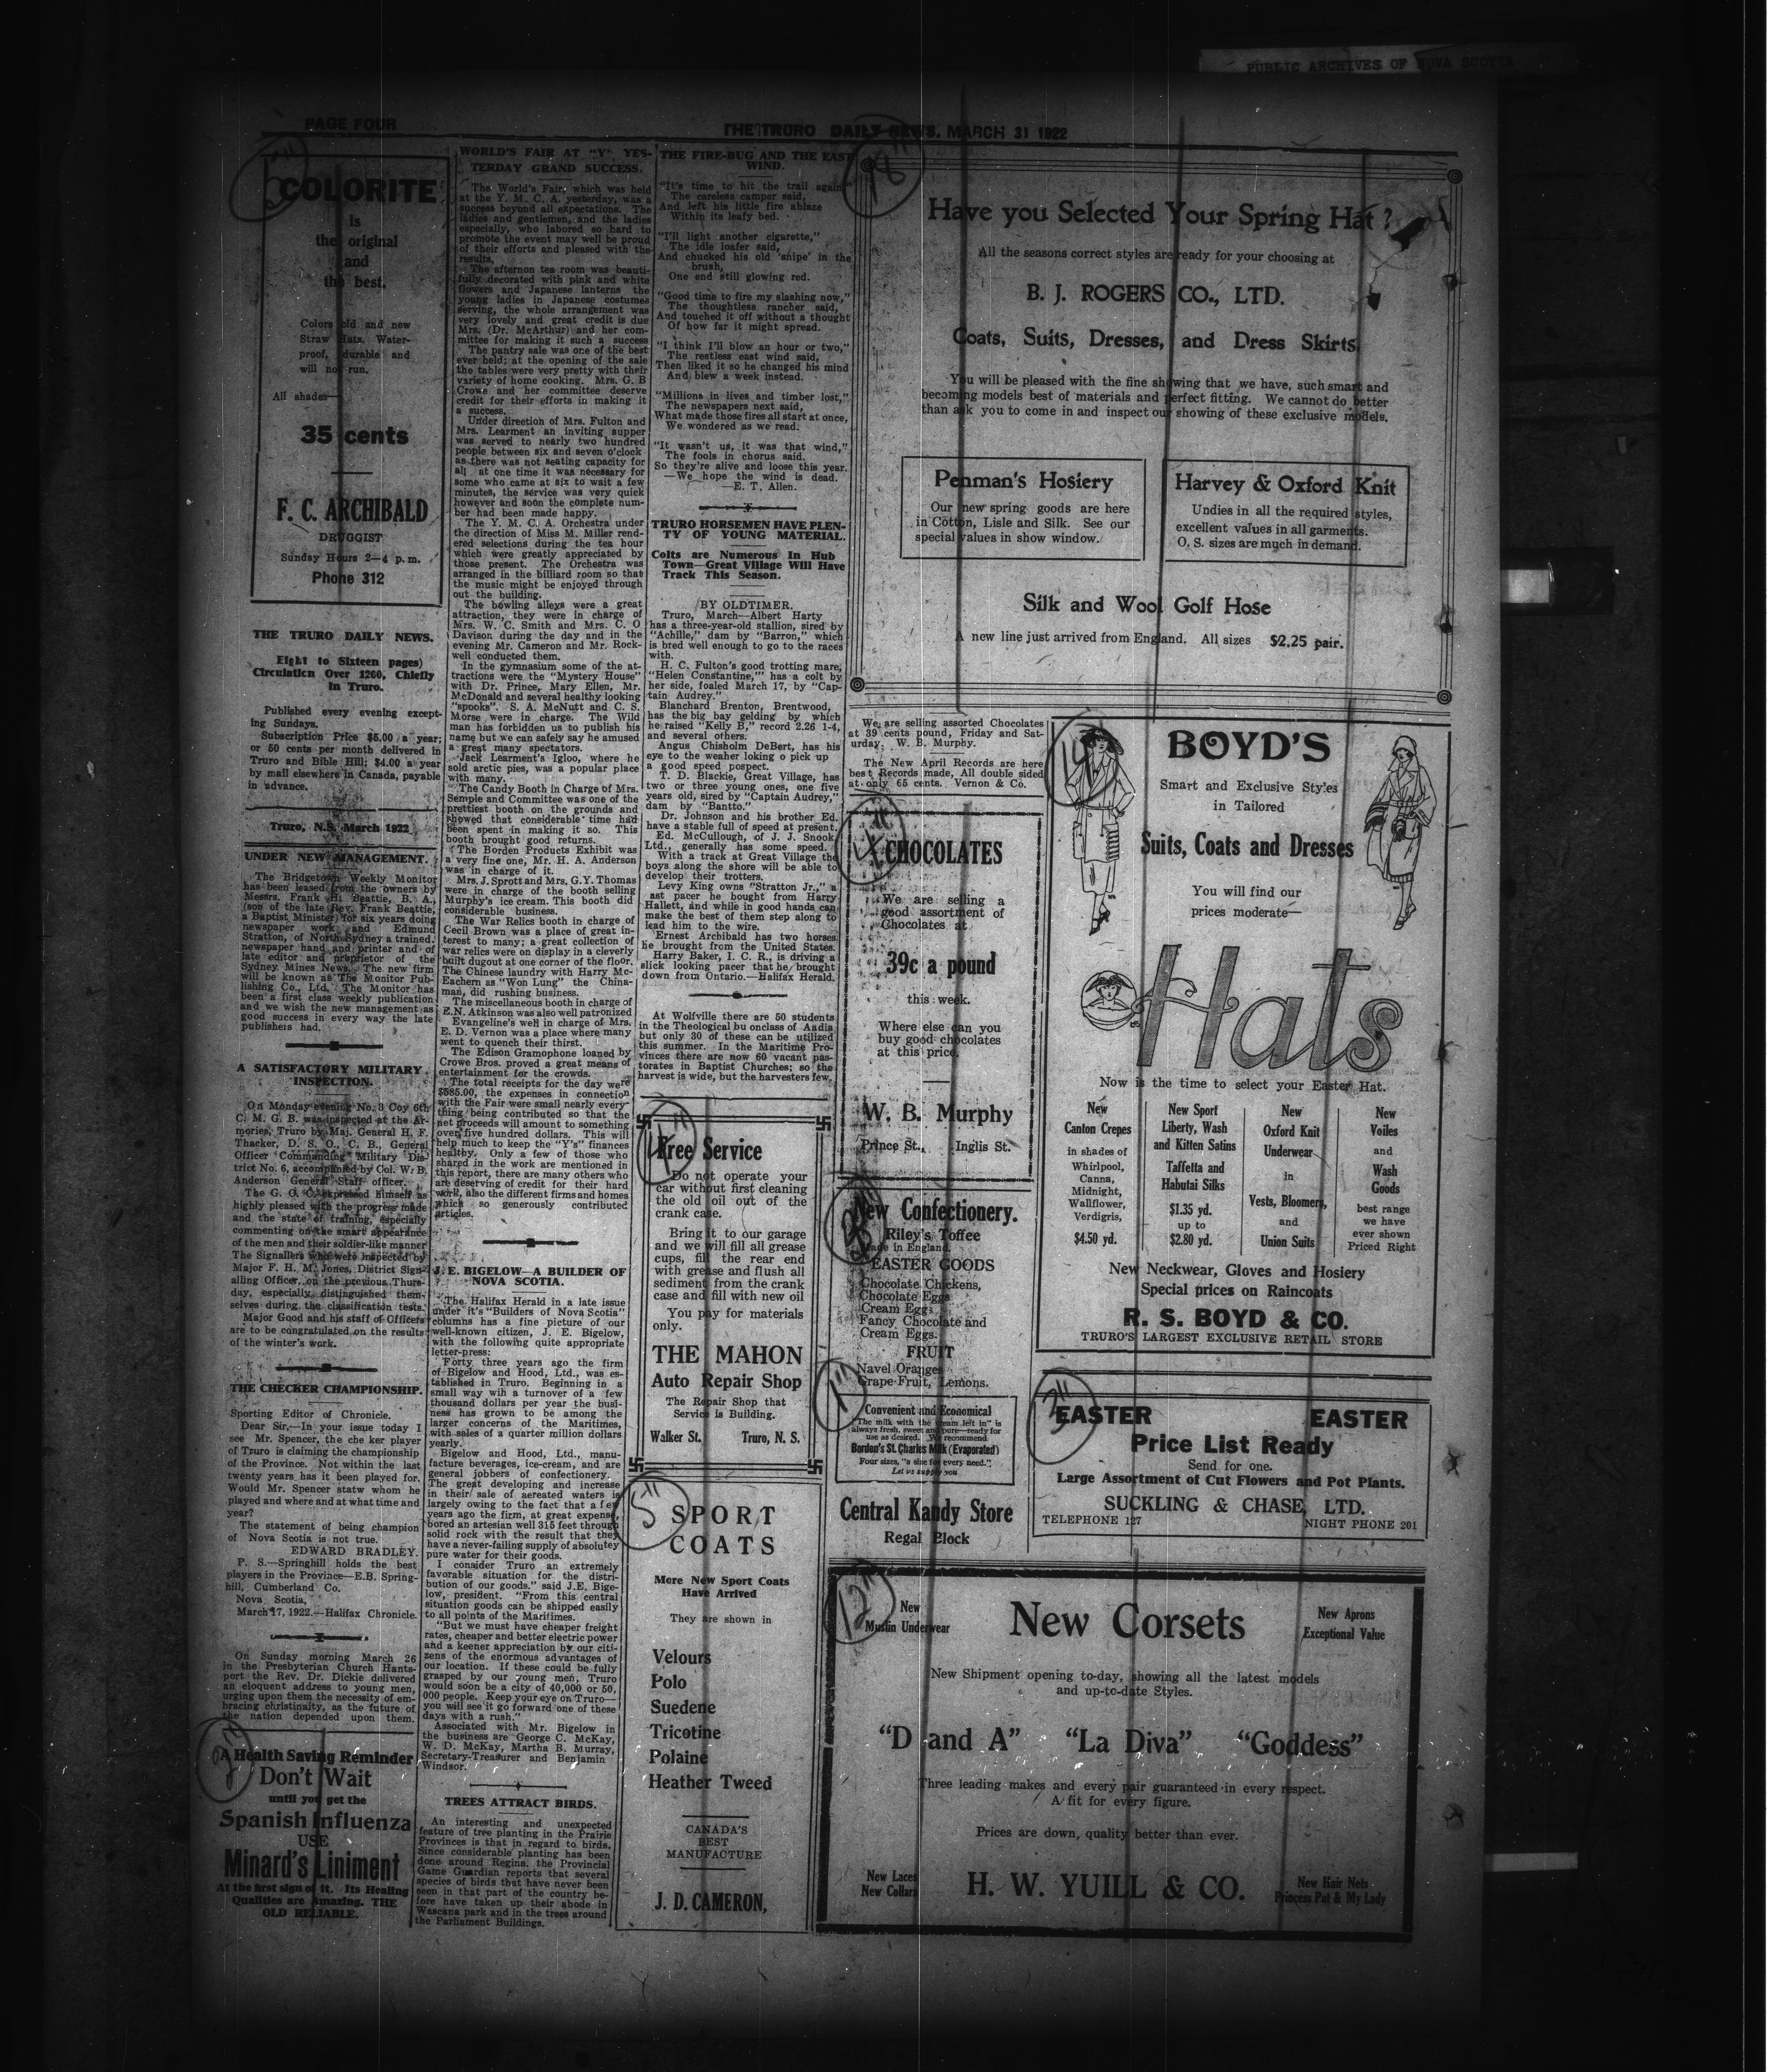 PUBLIC ARCHIVES OF NOVA SCOTIA
PAGE FOUR
THE TRURO DAILY NEWS, MARCH 31 1922
COLORITE
is
the original
and
the best.
Colors old and new
Straw Hats. Water-
proof, durable and
will not run.
All shades—
35 cents
F. C. ARCHIBALD
DRUGGIST
Sunday Hours 2—4 p. m.
Phone 312
THE TRURO DAILY NEWS.
Eight to Sixteen pages)
Circulation Over 1260, Chiefly
in Truro.
Published every evening except-
ing Sundays.
Subscription Price $5.00 a year;
or 50 cents per month delivered in
Truro and Bible Hill; $4.00 a year
by mail elsewhere in Canada, payable
in advance.
Truro, N.S. March 1922
UNDER NEW MANAGEMENT.
The Bridgetown Weekly Monitor
has been leased from the owners by
Messrs. Frank H. Beattie, B. A.,
(son of the late Rev. Frank Beattie,
a Baptist Minister) for six years doing
newspaper work and Edmund
Stratton, of North Sydney a trained
newspaper hand and printer and of
late editor and proprietor of the
Sydney Mines News. The new firm
will be known as The Monitor Pub-
lishing Co., Ltd. The Monitor has
been a first class weekly publication
and we wish the new management as
good success in every way the late
publishers had.
A SATISFACTORY MILITARY
INSPECTION.
On Monday evening No. 3 Coy 6th
C. M. G. B. was inspected at the Ar-
mories, Truro by Maj. General H. F.
Thacker, D. S. O., C. B., General
Officer Commanding Military Dis-
trict No. 6, accompanied by Col. W. B.
Anderson General Staff officer.
The G. O. C. expressed himself as
highly pleased with the progress made
and the state of training, especially
commenting on the smart appearance
of the men and their soldier-like manner
The Signallers who were inspected by
Major F. H. M. Jones, District Sign-
alling Officer, on the previous Thurs-
day, especially distinguished them-
selves during the classification tests.
Major Good and his staff of Officers
are to be congratulated on the results
of the winter's work.
THE CHECKER CHAMPIONSHIP.
Sporting Editor of Chronicle.
Dear Sir,—In your issue today I
see Mr. Spencer, the che ker player
of Truro is claiming the championship
of the Province. Not within the last
twenty years has it been played for.
Would Mr. Spencer statw whom he
played and where and at what time and
year?
The statement of being champion
of Nova Scotia is not true.
EDWARD BRADLEY.
P. S.—Springhill holds the best
players in the Province—E.B. Spring-
hill, Cumberland Co.
Nova Scotia,
March 17, 1922.—Halifax Chronicle.
On Sunday morning March 26
in the Presbyterian Church Hants-
port the Rev. Dr. Dickie delivered
an eloquent address to young men,
urging upon them the necessity of em-
bracing christinaity, as the future of
the nation depended upon them.
A Health Saving Reminder
Don't Wait
until you get the
Spanish Influenza
USE
Minard's Liniment
At the first sign of it. Its Healing
Qualities are Amazing. THE
OLD RELIABLE.
WORLD'S FAIR AT "Y" YES-
TERDAY GRAND SUCCESS.
The World's Fair, which was held
at the Y. M. C. A. yesterday, was a
success beyond all expectations. The
ladies and gentlemen, and the ladies
especially, who labored so hard to
promote the event may well be proud
of their efforts and pleased with the
results.
The afternon tea room was beauti-
fully decorated with pink and white
flowers and Japanese lanterns the
young ladies in Japanese costumes
serving, the whole arrangement was
very lovely and great credit is due
Mrs. (Dr. McArthur) and her com-
mittee for making it such a success
The pantry sale was one of the best
ever held; at the opening of the sale
the tables were very pretty with their
variety of home cooking. Mrs. G. B
Crowe and her committee deserve
credit for their efforts in making it
a success.
Under direction of Mrs. Fulton and
Mrs. Learment an inviting supper
was served to nearly two hundred
people between six and seven o'clock
as there was not seating capacity for
all at one time it was necessary for
some who came at six to wait a few
minutes, the service was very quick
however and soon the complete num-
ber had been made happy.
The Y. M. C. A. Orchestra under
the direction of Miss M. Miller rend-
ered selections during the tea hour
which were greatly appreciated by
those present. The Orchestra was
arranged in the billiard room so that
the music might be enjoyed through
out the building.
The bowling alleys were a great
attraction, they were in charge of
Mrs. W. C. Smith and Mrs. C. O
Davison during the day and in the
evening Mr. Cameron and Mr. Rock-
well conducted them.
In the gymnasium some of the at-
tractions were the "Mystery House"
with Dr. Prince, Mary Ellen, Mr.
McDonald and several healthy looking
"spooks". S. A. McNutt and C. S.
Morse were in charge. The Wild
man has forbidden us to publish his
name but we can safely say he amused
a great many spectators.
Jack Learment's Igloo, where he
sold arctic pies, was a popular place
with many.
The Candy Booth in Charge of Mrs.
Semple and Committee was one of the
prettiest booth on the grounds and
showed that considerable time had
been spent in making it so. This
booth brought good returns.
The Borden Products Exhibit was
a very fine one, Mr. H. A. Anderson
was in charge of it.
Mrs. J. Sprott and Mrs. G.Y. Thomas
were in charge of the booth selling
Murphy's ice cream. This booth did
considerable business.
The War Relics booth in charge of
Cecil Brown was a place of great in-
terest to many; a great collection of
war relics were on display in a cleverly
built dugout at one corner of the floor.
The Chinese laundry with Harry Mc-
Eachern as "Won Lung" the China-
man, did rushing business.
The miscellaneous booth in charge of
E.N. Atkinson was also well patronized
Evangeline's well in charge of Mrs.
E. D. Vernon was a place where many
went to quench their thirst.
The Edison Gramophone loaned by
Crowe Bros. proved a great means of
entertainment for the crowds.
The total receipts for the day were
$585.00, the expenses in connection
with the Fair were small nearly every-
thing being contributed so that the
net proceeds will amount to something
over five hundred dollars. This will
help much to keep the "Y's" finances
healthy. Only a few of those who
shared in the work are mentioned in
this report, there are many others who
are deserving of credit for their hard
work, also the different firms and homes
which so generously contributed
articles.
J. E. BIGELOW—A BUILDER OF
NOVA SCOTIA.
The Halifax Herald in a late issue
under it's "Builders of Nova Scotia"
columns has a fine picture of our
well-known citizen, J. E. Bigelow,
with the following quite appropriate
letter-press:
Forty three years ago the firm
of Bigelow and Hood, Ltd., was es-
tablished in Truro. Beginning in a
small way wih a turnover of a few
thousand dollars per year the busi-
ness has grown to be among the
larger concerns of the Maritimes,
with sales of a quarter million dollars
yearly.
Bigelow and Hood, Ltd., manu-
facture beverages, ice-cream, and are
general jobbers of confectionery.
The great developing and increase
in their sale of aereated waters is
largely owing to the fact that a few
years ago the firm, at great expense,
bored an artesian well 315 feet through
solid rock with the result that they
have a never-failing supply of absolutey
pure water for their goods.
I consider Truro an extremely
favorable situation for the distri-
bution of our goods." said J.E. Bige-
low, president. "From this central
situation goods can be shipped easily
to all points of the Maritimes.
"But we must have cheaper freight
rates, cheaper and better electric power
and a keener appreciation by our citi-
zens of the enormous advantages of
our location. If these could be fully
grasped by our young men, Truro
would soon be a city of 40,000 or 50,
000 people. Keep your eye on Truro—
you will see it go forward one of these
days with a rush."
Associated with Mr. Bigelow in
the business are George C. McKay,
W. D. McKay, Martha B. Murray,
Secretary-Treasurer and Benjamin
Windsor.
TREES ATTRACT BIRDS.
An interesting and unexpected
feature of tree planting in the Prairie
Provinces is that in regard to birds.
Since considerable planting has been
done around Regina. the Provincial
Game Guardian reports that several
species of birds that have never been
seen in that part of the country be-
fore have taken up their abode in
Wascana park and in the trees around
the Parliament Buildings.
THE FIRE-BUG AND THE EAST
WIND.
"It's time to hit the trail again"
The careless camper said,
And left his little fire ablaze
Within its leafy bed.
"I'll light another cigarette,"
The idle loafer said,
And chucked his old 'snipe' in the
brush,
One end still glowing red.
"Good time to fire my slashing now,"
The thoughtless rancher said,
And touched it off without a thought
Of how far it might spread.
"I think I'll blow an hour or two,"
The restless east wind said,
Then liked it so he changed his mind
And blew a week instead.
"Millions in lives and timber lost,"
The newspapers next said,
What made those fires all start at once,
We wondered as we read.
"It wasn't us, it was that wind,"
The fools in chorus said.
So they're alive and loose this year.
—We hope the wind is dead.
—E. T. Allen.
TRURO HORSEMEN HAVE PLEN-
TY OF YOUNG MATERIAL.
Colts are Numerous In Hub
Town—Great Village Will Have
Track This Season.
BY OLDTIMER.
Truro, March—Albert Harty
has a three-year-old stallion, sired by
"Achille," dam by "Barron," which
is bred well enough to go to the races
with.
H. C. Fulton's good trotting mare,
"Helen Constantine,"' has a colt by
her side, foaled March 17, by "Cap-
tain Audrey."
Blanchard Brenton, Brentwood,
has the big bay gelding by which
he raised "Kelly B," record 2.26 1-4,
and several others.
Angus Chisholm DeBert, has his
eye to the weaher loking o pick up
a good speed pospect.
T. D. Blackie, Great Village, has
two or three young ones, one five
years old, sired by "Captain Audrey,"
dam by "Bantto."
Dr. Johnson and his brother Ed.
have a stable full of speed at present.
Ed. McCullough, of J. J. Snook
Ltd., generally has some speed.
With a track at Great Village the
boys along the shore will be able to
develop their trotters.
Levy King owns "Stratton Jr.," a
ast pacer he bought from Harry
Hallett, and while in good hands can
make the best of them step along to
lead him to the wire.
Ernest Archibald has two horses
he brought from the United States.
Harry Baker, I. C. R., is driving a
slick looking pacer that he brought
down from Ontario.—Halifax Herald.
At Wolfville there are 50 students
in the Theological bu onclass of Aadia
but only 30 of these can be utilized
this summer. In the Maritime Pro-
vinces there are now 60 vacant pas-
torates in Baptist Churches; so the
harvest is wide, but the harvesters few.
Free Service
Do not operate your
car without first cleaning
the old oil out of the
crank case.
Bring it to our garage
and we will fill all grease
cups, fill the rear end
with grease and flush all
sediment from the crank
case and fill with new oil
You pay for materials
only.
THE MAHON
Auto Repair Shop
The Repair Shop that
Service is Building.
Walker St. Truro, N. S.
5"
SPORT
COATS
More New Sport Coats
Have Arrived
They are shown in
Velours
Polo
Suedene
Tricotine
Polaine
Heather Tweed
CANADA'S
BEST
MANUFACTURE
J. D. CAMERON,
18"
Have you Selected Your Spring Hat?
All the seasons correct styles are ready for your choosing at
B. J. ROGERS CO., LTD.
Coats, Suits, Dresses, and Dress Skirts
You will be pleased with the fine showing that we have, such smart and
becoming models best of materials and perfect fitting. We cannot do better
than ask you to come in and inspect our showing of these exclusive models.
Penman's Hosiery
Our new spring goods are here
in Cotton, Lisle and Silk. See our
special values in show window.
Harvey & Oxford Knit
Undies in all the required styles,
excellent values in all garments.
O. S. sizes are much in demand.
Silk and Wool Golf Hose
A new line just arrived from England. All sizes $2.25 pair.
We are selling assorted Chocolates
at 39 cents pound, Friday and Sat-
urday. W. B. Murphy.
The New April Records are here
best Records made, All double sided
at only 65 cents. Vernon & Co.
CHOCOLATES
We are selling a
good assortment of
Chocolates at
39c a pound
this week.
Where else can you
buy good chocolates
at this price.
W. B. Murphy
Prince St., Inglis St.
New Confectionery.
Riley's Toffee
Made in England.
EASTER GOODS
Chocolate Chickens,
Chocolate Eggs
Cream Eggs
Fancy Chocolate and
Cream Eggs.
FRUIT
Navel Oranges
Grape Fruit, Lemons.
1"
Convenient and Economical
"The milk with the cream left in" is
always fresh, sweet and pure—ready for
use as desired. We recommend
Borden's St. Charles Milk (Evaporated)
Four sizes, "a size for every need."
Let us supply you
Central Kandy Store
Regal Block
14"
BOYD'S
Smart and Exclusive Styles
in Tailored
Suits, Coats and Dresses
You will find our
prices moderate—
Hats
Now is the time to select your Easter Hat.
New
Canton Crepes
in shades of
Whirlpool,
Canna,
Midnight,
Wallflower,
Verdigris,
$4.50 yd.
New Sport
Liberty, Wash
and Kitten Satins
Taffetta and
Habutai Silks
$1.35 yd.
up to
$2.80 yd.
New
Oxford Knit
Underwear
in
Vests, Bloomers,
and
Union Suits
New
Voiles
and
Wash
Goods
best range
we have
ever shown
Priced Right
New Neckwear, Gloves and Hosiery
Special prices on Raincoats
R. S. BOYD & CO.
TRURO'S LARGEST EXCLUSIVE RETAIL STORE
3"
EASTER EASTER
Price List Ready
Send for one.
Large Assortment of Cut Flowers and Pot Plants.
SUCKLING & CHASE, LTD.
TELEPHONE 127 NIGHT PHONE 201
12"
New
Muslin Underwear
New Corsets
New Aprons
Exceptional Value
New Shipment opening to-day, showing all the latest models
and up-to-date Styles.
"D and A" "La Diva" "Goddess"
Three leading makes and every pair guaranteed in every respect.
A fit for every figure.
Prices are down, quality better than ever.
New Laces
New Collars
H. W. YUILL & CO.
New Hair Nets
Princess Pat & My Lady